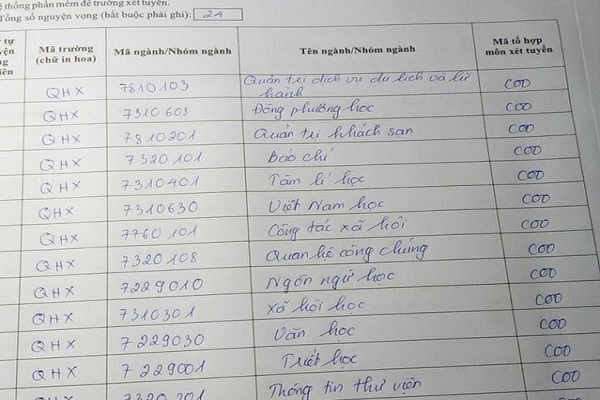 ệ thống phần mềm để trường xét tuyển.
Tổng số nguyện vọng (bắt buộc phải ghi): 21
tự
Mã trường
(chữ in hoa)
Mã ngành/Nhóm ngành
Tên ngành/Nhóm ngành
Mã tổ hợp
môn xét tuyển
QHX 7810103 Quản trị dịch vụ du lịch và lữ hành C00
QHX 7310608 Đông phương học C00
QHX 7810201 Quản trị khách sạn C00
QHX 7320101 Báo chí C00
QHX 7310401 Tâm lí học C00
QHX 7310630 Việt Nam học C00
QHX 7760101 Công tác xã hội C00
QHX 7320108 Quan hệ công chúng C00
QHX 7229010 Ngôn ngữ học C00
QHX 7310301 Xã hội học C00
QHX 7229030 Văn học C00
QHX 7229001 Triết học C00
7320201 Thông tin thư viện C00